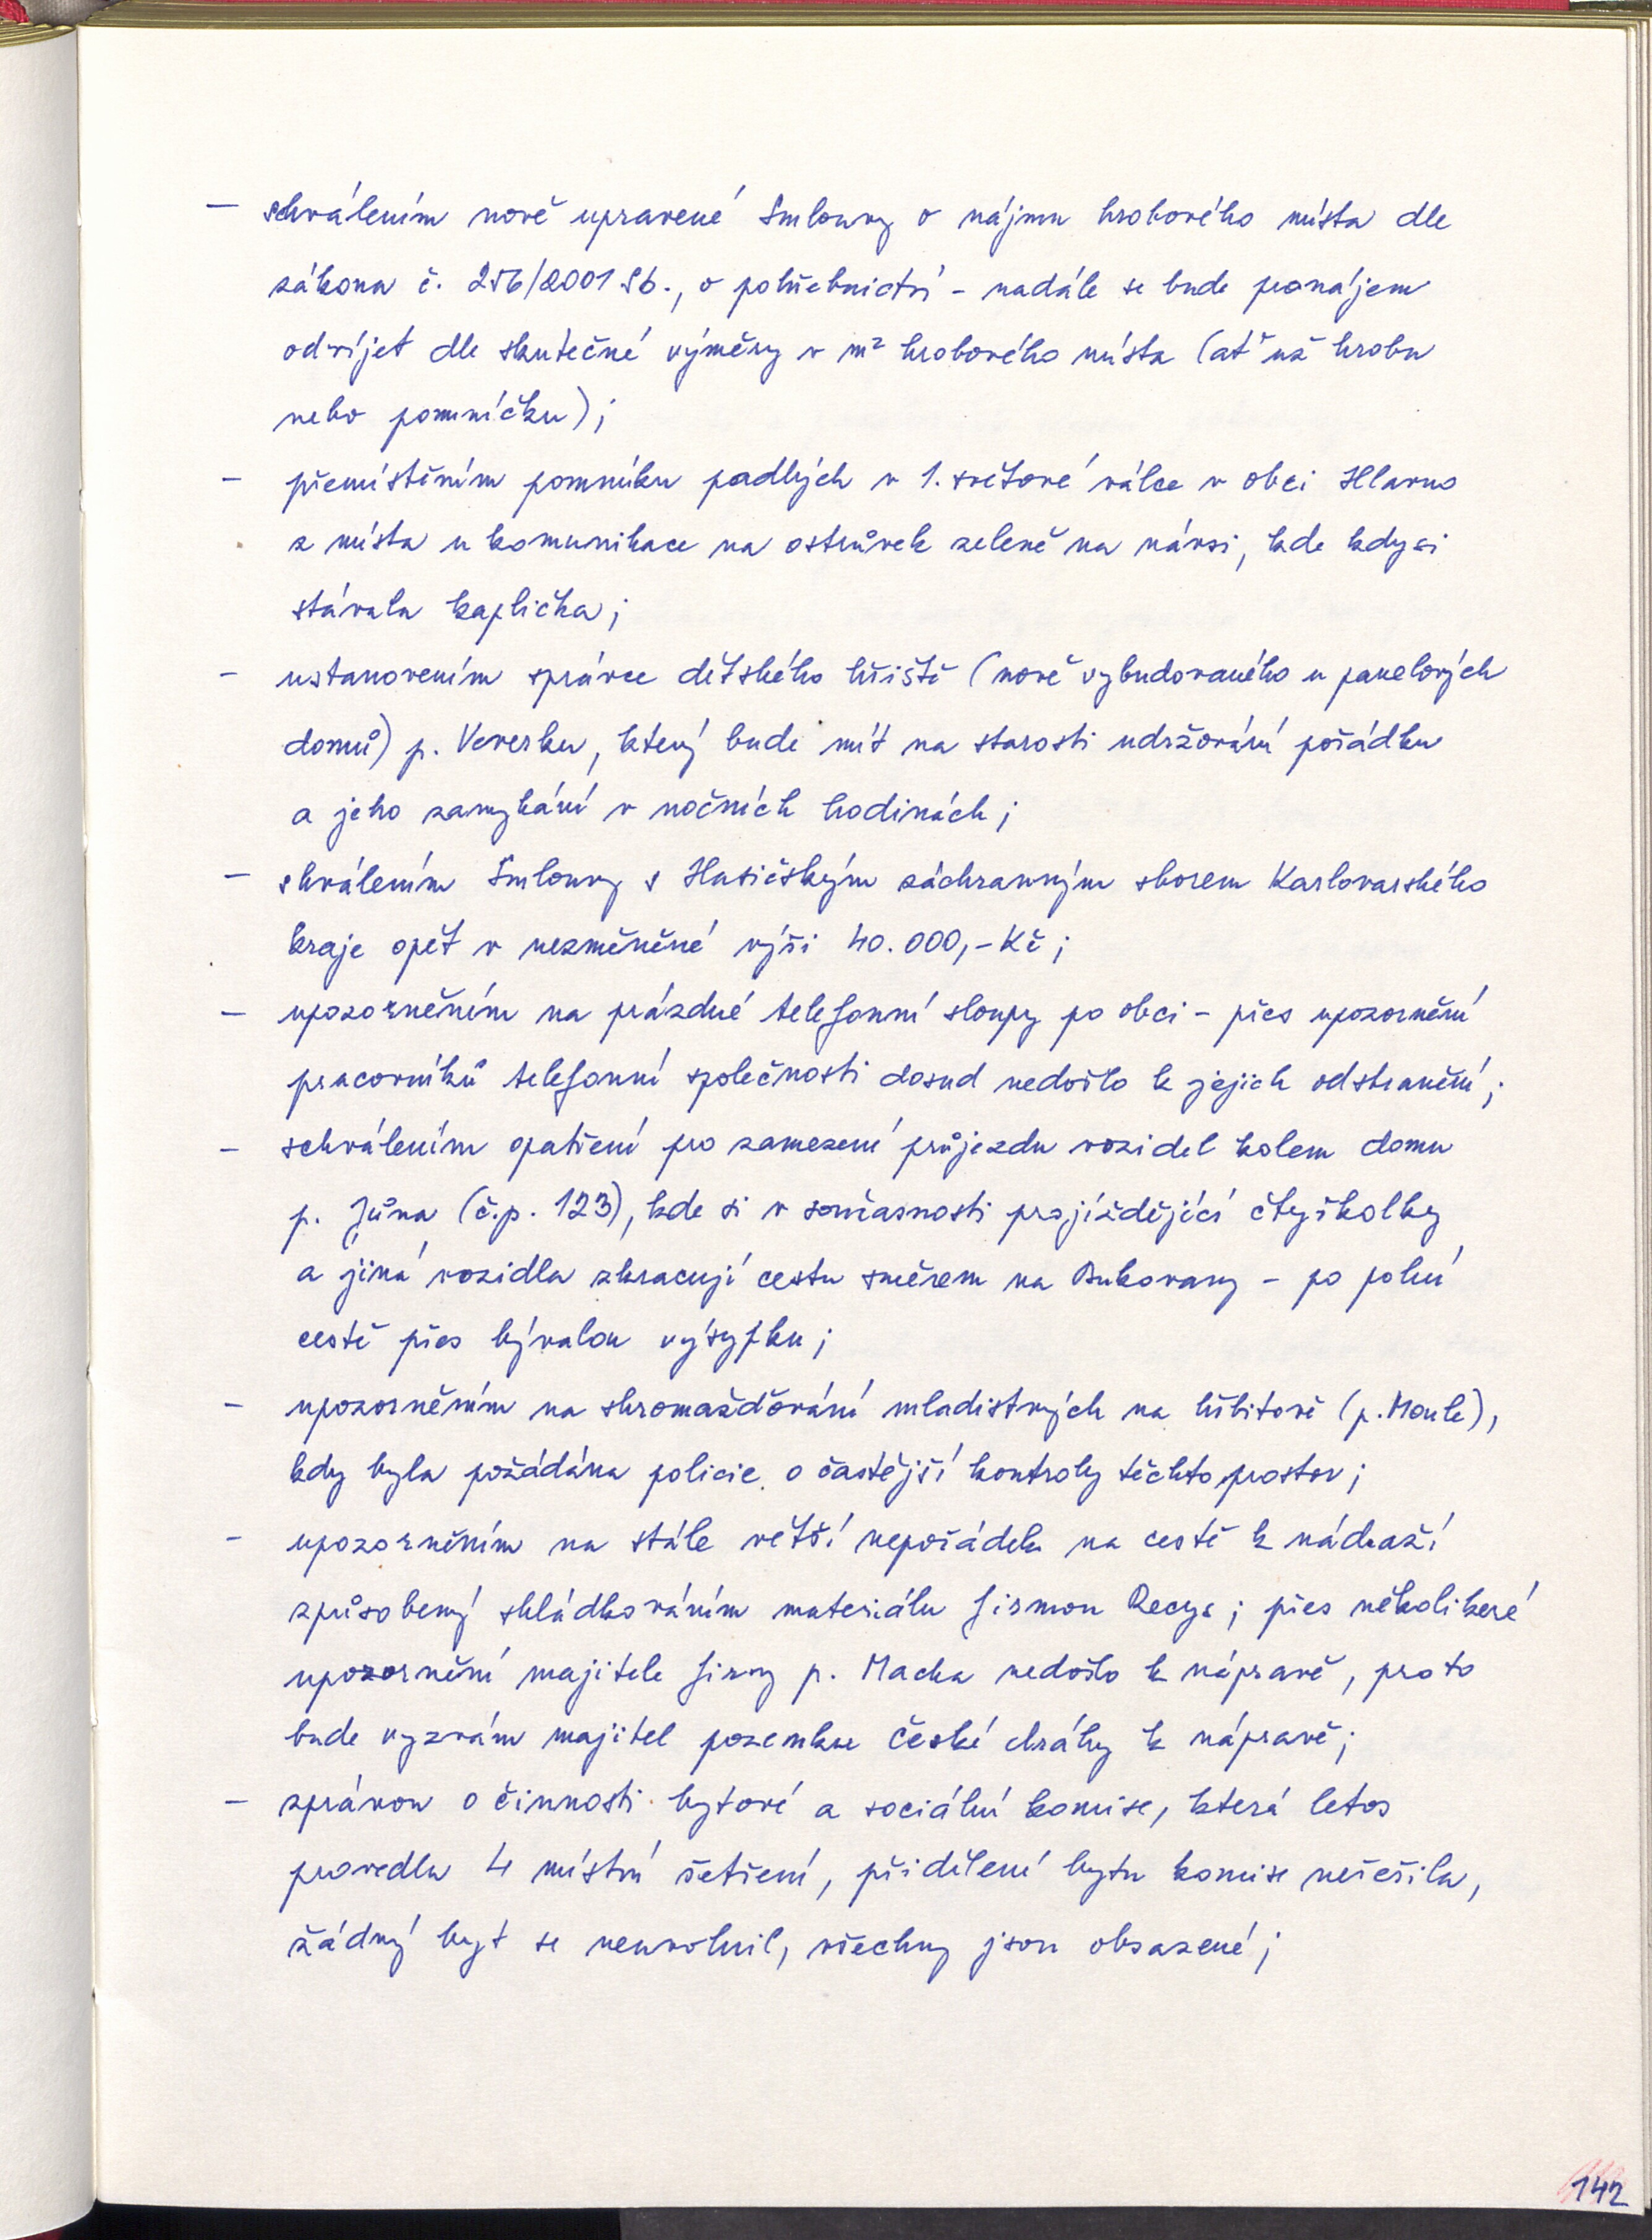 – schválením nově upravené Smlouvy o nájmu hrobového místa dle
zákona č. 256/2001 Sb., o pohřebnictví – nadále se bude pronájem
odvíjet dle skutečné výměry v m² hrobového místa (ať už hrobu
nebo pomníčku);
– přemístěním pomníku padlých v 1. světové válce v obci Hlavno
z místa u komunikace na ostrůvek zeleně na návsi, kde kdysi
stávala kaplička;
– ustanovením správce dětského hřiště (nově vybudovaného u panelových
domů) p. Veverku, který bude mít na starosti udržování pořádku
a jeho zamykání v nočních hodinách;
– schválením Smlouvy s Hasičským záchranným sborem Karlovarského
kraje opět v nezměněné výši 40.000,- Kč;
– upozorněním na prázdné telefonní sloupy po obci – přes upozornění
pracovníků telefonní společnosti dosud nedošlo k jejich odstranění;
– schválením opatření pro zamezení průjezdu vozidel kolem domu
p. Jůna (č.p. 123), kde si v současnosti projíždějící čtyřkolky
a jiná vozidla zkracují cestu směrem na Bukovany – po polní
cestě přes bývalou výsypku;
– upozorněním na shromažďování mladistvých na hřbitově (p. Moule),
kdy byla požádána policie o častější kontroly těchto prostor;
– upozorněním na stále větší nepořádek na cestě k nádraží
způsobený skládkováním materiálu firmou Recys; přes několikeré
upozornění majitele firmy p. Macka nedošlo k nápravě, proto
bude vyzván majitel pozemku České dráhy k nápravě;
– zprávou o činnosti bytové a sociální komise, která letos
provedla 4 místní šetření, přidělení bytu komise neřešila,
žádný byt se neuvolnil, všechny jsou obsazené;
142